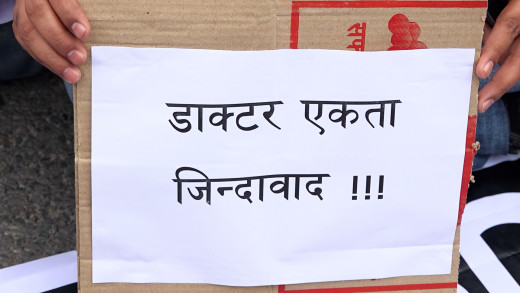 डाक्टर एकता
जिन्दावाद !!!